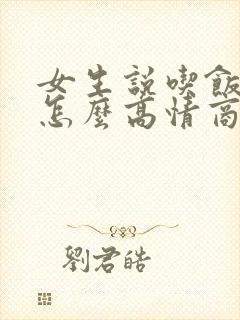 女生説喫飯
怎麼高情商
劉君皓